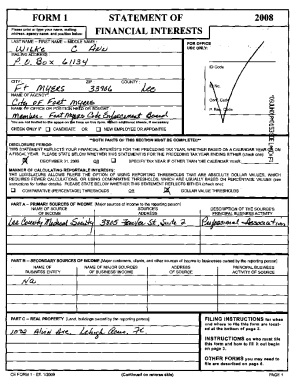 FORM 1 STATEMENT OF 2008
FINANCIAL INTERESTS
Please print or type your name, mailing address, agency name, and position below:
LAST NAME - FIRST NAME - MIDDLE NAME:
Wilke C Ann
MAILING ADDRESS:
P.O. Box 61134
FOR OFFICE USE ONLY:
ID Code
ID No.
Conf. Code
CITY: ZIP: COUNTY:
Ft Myers 33906 Lee
NAME OF AGENCY:
City of Fort Myers
NAME OF OFFICE OR POSITION HELD OR SOUGHT:
Member - Fort Myers Code Enforcement Board
CHECK ONLY IF CANDIDATE OR NEW EMPLOYEE OR APPOINTEE
**BOTH PARTS OF THIS SECTION MUST BE COMPLETED**
DISCLOSURE PERIOD:
THIS STATEMENT REFLECTS YOUR FINANCIAL INTERESTS FOR THE PRECEDING TAX YEAR, WHETHER BASED ON A CALENDAR YEAR OR ON A FISCAL YEAR. PLEASE STATE BELOW WHETHER THIS STATEMENT IS FOR THE PRECEDING TAX YEAR ENDING EITHER (check one):
DECEMBER 31, 2008 OR SPECIFY TAX YEAR IF OTHER THAN THE CALENDAR YEAR:
MANNER OF CALCULATING REPORTABLE INTERESTS:
THE LEGISLATURE ALLOWS FILERS THE OPTION OF USING REPORTING THRESHOLDS THAT ARE ABSOLUTE DOLLAR VALUES, WHICH REQUIRES FEWER CALCULATIONS, OR USING COMPARATIVE THRESHOLDS, WHICH ARE USUALLY BASED ON PERCENTAGE VALUES (see instructions for further details). PLEASE STATE BELOW WHETHER THIS STATEMENT REFLECTS EITHER (check one):
COMPARATIVE (PERCENTAGE) THRESHOLDS OR DOLLAR VALUE THRESHOLDS
PART A - PRIMARY SOURCES OF INCOME [Major sources of income to the reporting person]
NAME OF SOURCE OF INCOME SOURCE'S ADDRESS DESCRIPTION OF THE SOURCE'S PRINCIPAL BUSINESS ACTIVITY
Lee County Medical Society 3805 Fowler St, Suite 2 Professional Association
PART B - SECONDARY SOURCES OF INCOME [Major customers, clients, and other sources of income to businesses owned by the reporting person]
NAME OF BUSINESS ENTITY NAME OF MAJOR SOURCES OF BUSINESS' INCOME ADDRESS OF SOURCE PRINCIPAL BUSINESS ACTIVITY OF SOURCE
Na
PART C - REAL PROPERTY [Land, buildings owned by the reporting person]
FILING INSTRUCTIONS for when and where to file this form are located at the bottom of page 2.
INSTRUCTIONS on who must file this form and how to fill it out begin on page 3.
OTHER FORMS you may need to file are described on page 6.
CE FORM 1 - Eff. 1/2009 (Continued on reverse side) PAGE 1